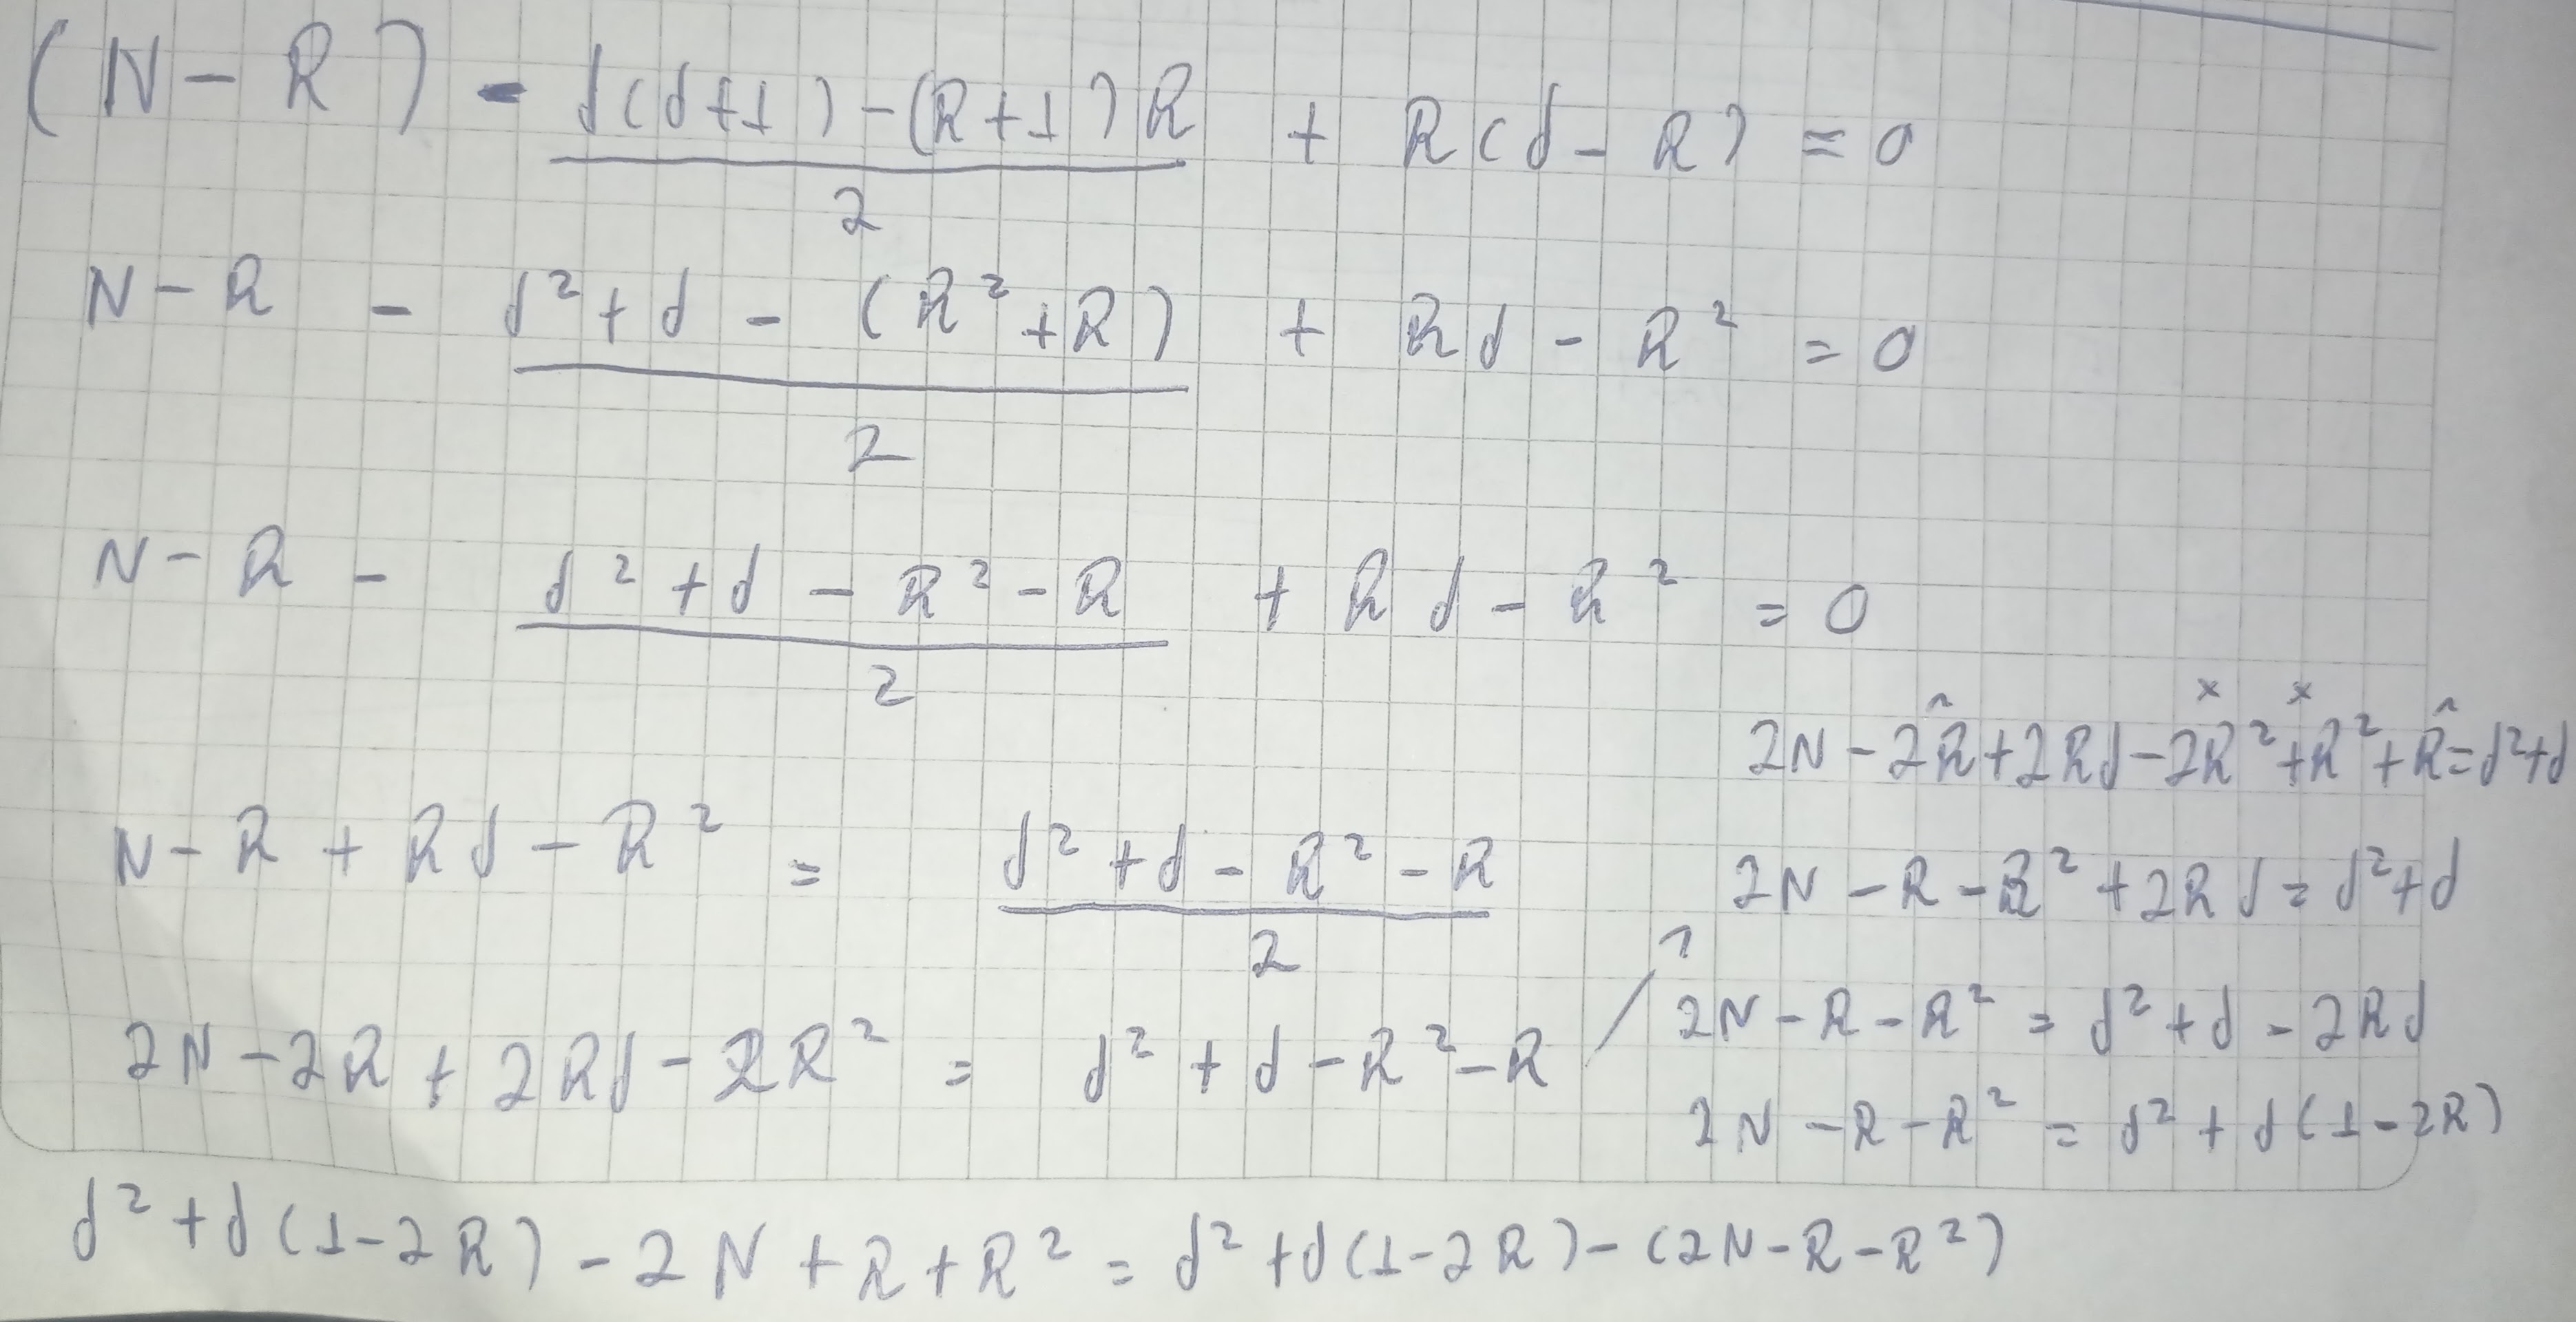 (N - R) - (d(d+1) - (R+1)R)/2 + R(d - R) = 0
N - R - (d² + d - (R² + R))/2 + Rd - R² = 0
N - R - (d² + d - R² - R)/2 + Rd - R² = 0
N - R + Rd - R² = (d² + d - R² - R)/2
2N - 2R + 2Rd - 2R² = d² + d - R² - R
2N - 2R̂ + 2Rd - 2R²ˣ + R²ˣ + R̂ = d² + d
2N - R - R² + 2Rd = d² + d
2N - R - R² = d² + d - 2Rd
2N - R - R² = d² + d(1 - 2R)
d² + d(1 - 2R) - 2N + R + R² = d² + d(1 - 2R) - (2N - R - R²)